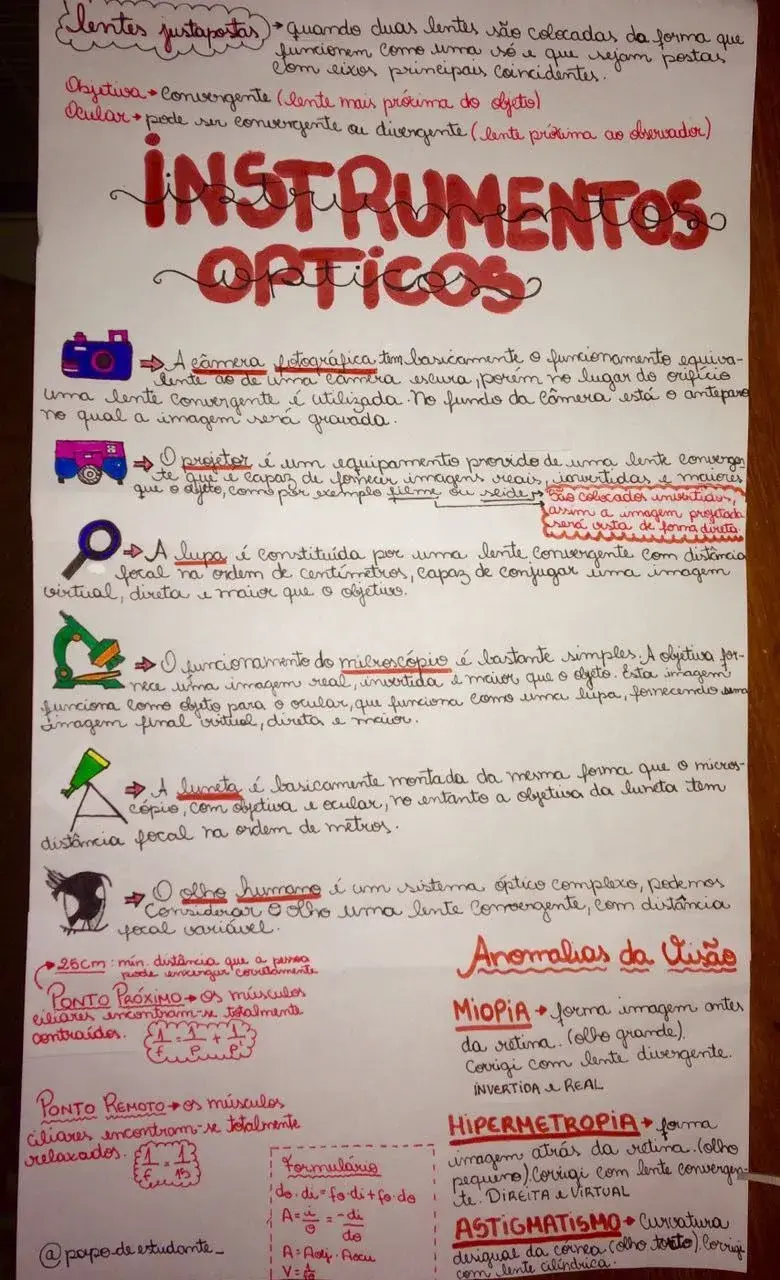 lentes justapostas → quando duas lentes são colocadas da forma que
funcionem como uma só e que sejam postas
com eixos principais coincidentes.
Objetiva → convergente (lente mais próxima do objeto)
Ocular → pode ser convergente ou divergente (lente próxima ao observador)
INSTRUMENTOS
instrumentos
OPTICOS
opticos
⇒ A câmera fotográfica tem basicamente o funcionamento equiva-
lente ao de uma câmara escura, porém no lugar do orifício
uma lente convergente é utilizada. No fundo da câmera está o anteparo
no qual a imagem será gravada.
⇒ O projetor é um equipamento provido de uma lente convergen
te que é capaz de fornecer imagens reais, invertidas e maiores
que o objeto, como por exemplo filme ou slide →
São colocados invertidas,
assim a imagem projetada
será vista de forma direta.
⇒ A lupa é constituída por uma lente convergente com distância
focal na ordem de centímetros, capaz de conjugar uma imagem
virtual, direta e maior que o objetivo.
⇒ O funcionamento do microscópio é bastante simples. A objetiva for-
nece uma imagem real, invertida e maior que o objeto. Esta imagem
funciona como objeto para o ocular, que funciona como uma lupa, fornecendo uma
imagem final virtual, direta e maior.
⇒ A luneta é basicamente montada da mesma forma que o micros-
cópio, com objetiva e ocular, no entanto a objetiva da luneta tem
distância focal na ordem de metros.
⇒ O olho humano é um sistema óptico complexo, podemos
considerar o olho uma lente convergente, com distância
focal variável.
→ 25cm: mín. distância que a pessoa
pode enxergar corretamente
PONTO PRÓXIMO → Os músculos
ciliares encontram-se totalmente
contraídos. 1/f = 1/P + 1/P'
PONTO REMOTO → os músculos
ciliares encontram-se totalmente
relaxados. 1/f = 1/
Formulário
do·di = fo·di + fo·do
A = i/o = -di/do
A = Aobj · Aocu
V =
@papo.de.estudante_
Anomalias da Visão
MIOPIA → forma imagem antes
da retina. (olho grande).
Corrigi com lente divergente.
INVERTIDA e REAL
HIPERMETROPIA → forma
imagem atrás da retina. (olho
pequeno). Corrigi com lente convergen-
te. DIREITA e VIRTUAL
ASTIGMATISMO → Curvatura
desigual da córnea (olho torto). Corrigi
com lente cilíndrica.